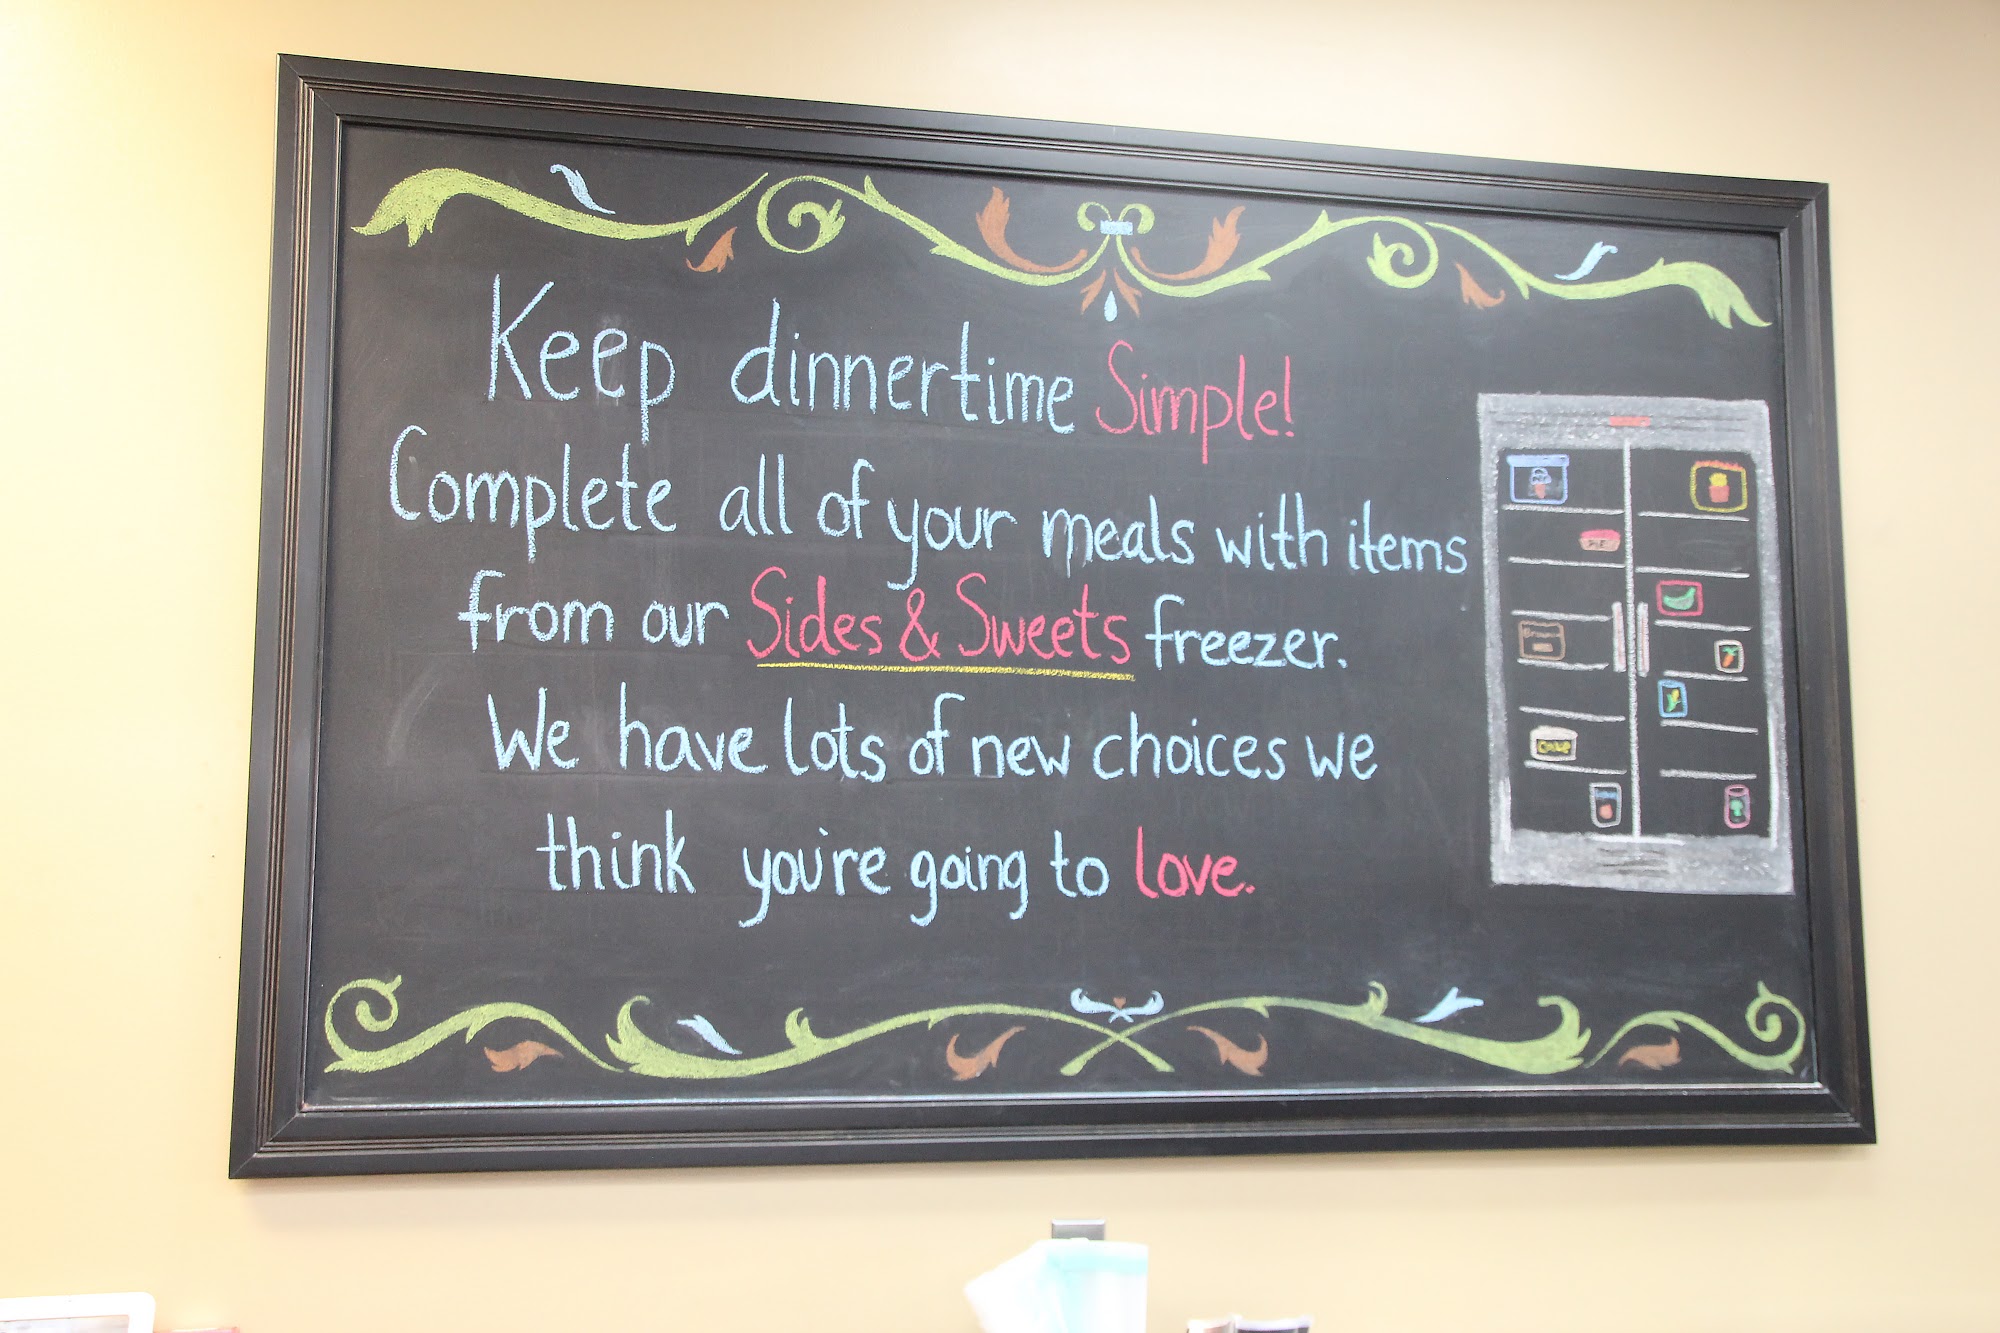 Keep dinnertime Simple!
Complete all of your meals with items
from our Sides & Sweets freezer.
We have lots of new choices we
think you're going to love.
PIE